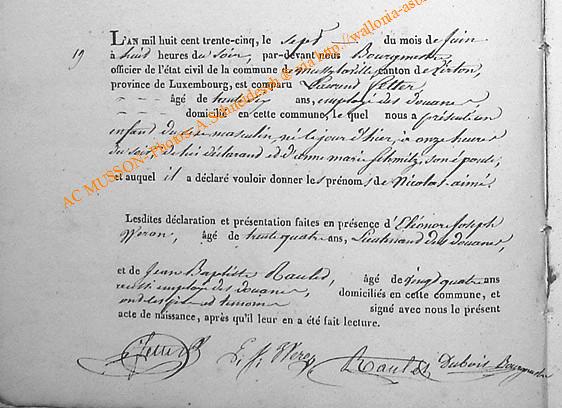 19
L'AN mil huit cent trente-cinq, le sept du mois de juin
à huit heures du soir, par-devant nous Bourgmestre
officier de l'état civil de la commune de canton de Virton,
province de Luxembourg, est comparu Laurend
âgé de ans, employé des Douane
domicilié en cette commune, le quel nous a présenté un
enfant du sexe masculin, né le jour d'hier, à onze heures
du soir, de lui déclarand et d'anne marie schmitz, son épouse,
et auquel il a déclaré vouloir donner les prénoms de Nicolas-aimé
Lesdites déclaration et présentation faites en présence d'Eléonore Joseph
âgé de quatre ans, Lieutenand des douane,
et de Jean Baptiste Raulet, âgé de quatre ans
employé des Douane, domiciliés en cette commune, et
ont signé avec nous le présent
acte de naissance, après qu'il leur en a été fait lecture.
Raulet Dubois Bourgmestre
AC MUSSON-Photos-A.Schneidesch@ via http://wallonia-aso